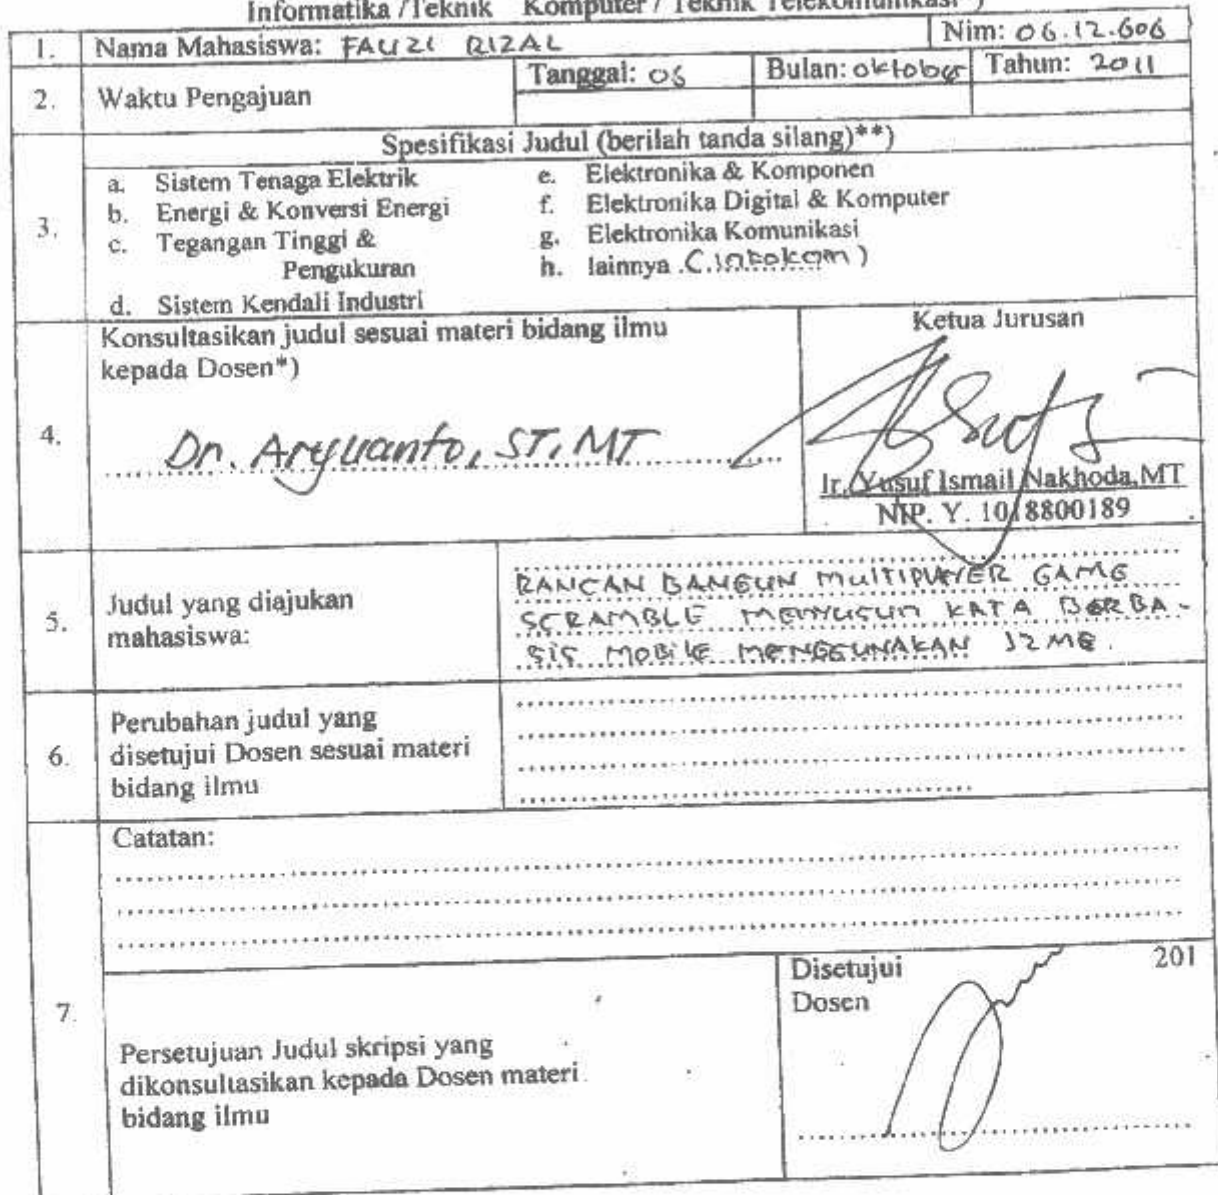 Informatika /Teknik Komputer / Teknik Telekomunikasi *)
1. Nama Mahasiswa: FAUZI RIZAL Nim: 06.12.606
2. Waktu Pengajuan Tanggal: 06 Bulan: oktober Tahun: 2011
Spesifikasi Judul (berilah tanda silang)**)
3.
a. Sistem Tenaga Elektrik
b. Energi & Konversi Energi
c. Tegangan Tinggi &
Pengukuran
d. Sistem Kendali Industri
e. Elektronika & Komponen
f. Elektronika Digital & Komputer
g. Elektronika Komunikasi
h. lainnya (.infokom)
4.
Konsultasikan judul sesuai materi bidang ilmu
kepada Dosen*)
Dr. Aryuanto, ST, MT
Ketua Jurusan
Ir. Yusuf Ismail Nakhoda,MT
NIP. Y. 1018800189
5.
Judul yang diajukan
mahasiswa:
RANCAN BANGUN MULTIPLAYER GAME
SCRAMBLE MENYUSUN KATA BERBA-
SIS MOBILE MENGGUNAKAN J2ME.
6.
Perubahan judul yang
disetujui Dosen sesuai materi
bidang ilmu
7.
Catatan:
Persetujuan Judul skripsi yang
dikonsultasikan kepada Dosen materi
bidang ilmu
Disetujui 201
Dosen